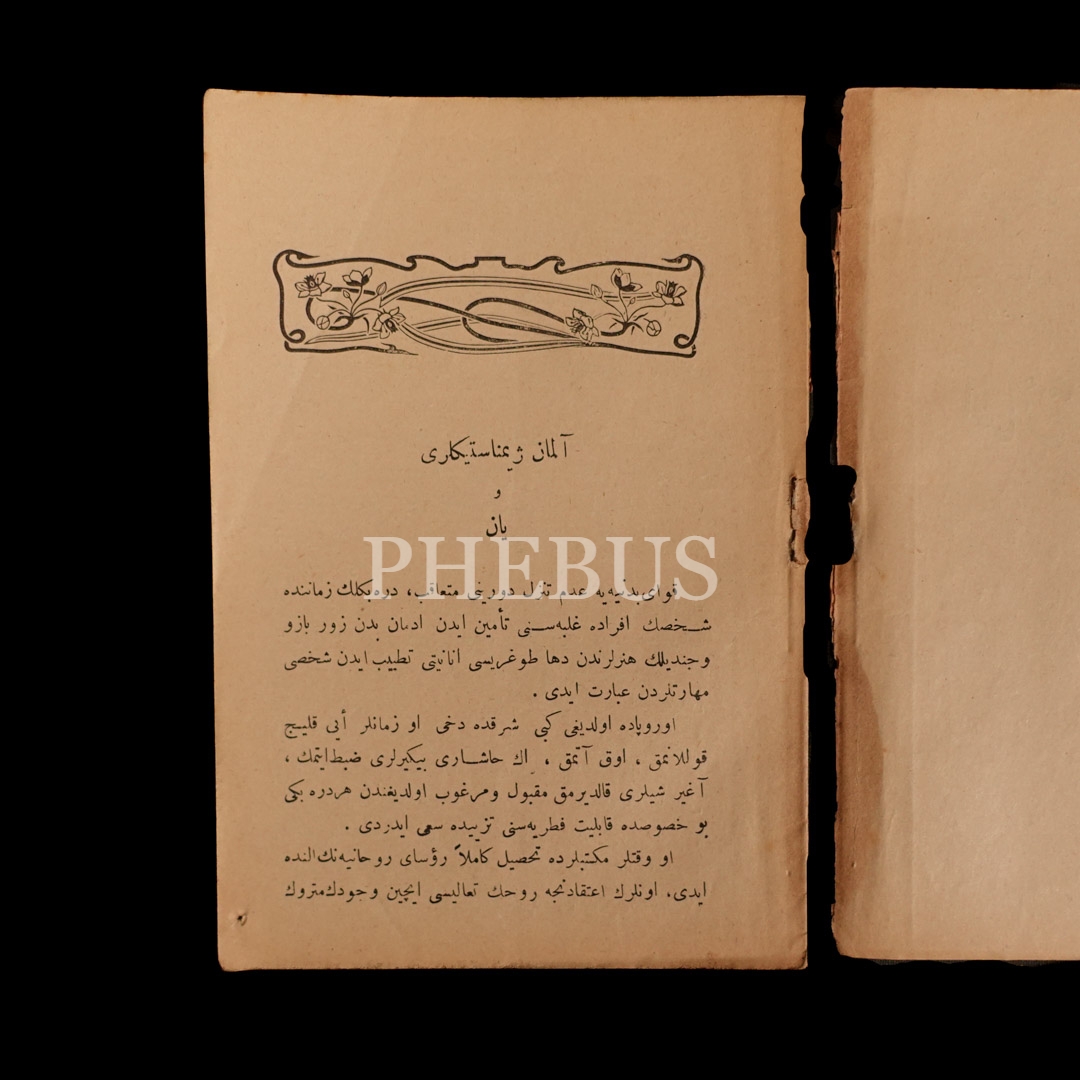 آلمان ژیمناستیکاری
و
یان
PHEBUS
قوای بدنیه‌یه عدم تنزل دورینی متعاقب، دره‌بکلك زماننده
شخصك افراده غلبه‌سنی تأمین ایدن ادمان بدن زور بازو
وجندیلك هنرلرندن دها طوغریسی انانیتی تطییب ایدن شخصی
مهارتلردن عبارت ایدی .
اوروپاده اولدیغی کبی شرقده دخی او زمانلر أیی قلیج
قوللانمق ، اوق آتمق ، اك حاشاری بیکیرلری ضبط ایتمك ،
آغیر شیلری قالدیرمق مقبول ومرغوب اولدیغندن هر دره بکی
بو خصوصده قابلیت فطریه‌سنی تزییده سعی ایدردی .
او وقتلر مکتبلرده تحصیل کاملاً رؤسای روحانیه‌نك النده
ایدی، اونلرك اعتقادنجه روحك تعالیسی ایچین وجودك متروك